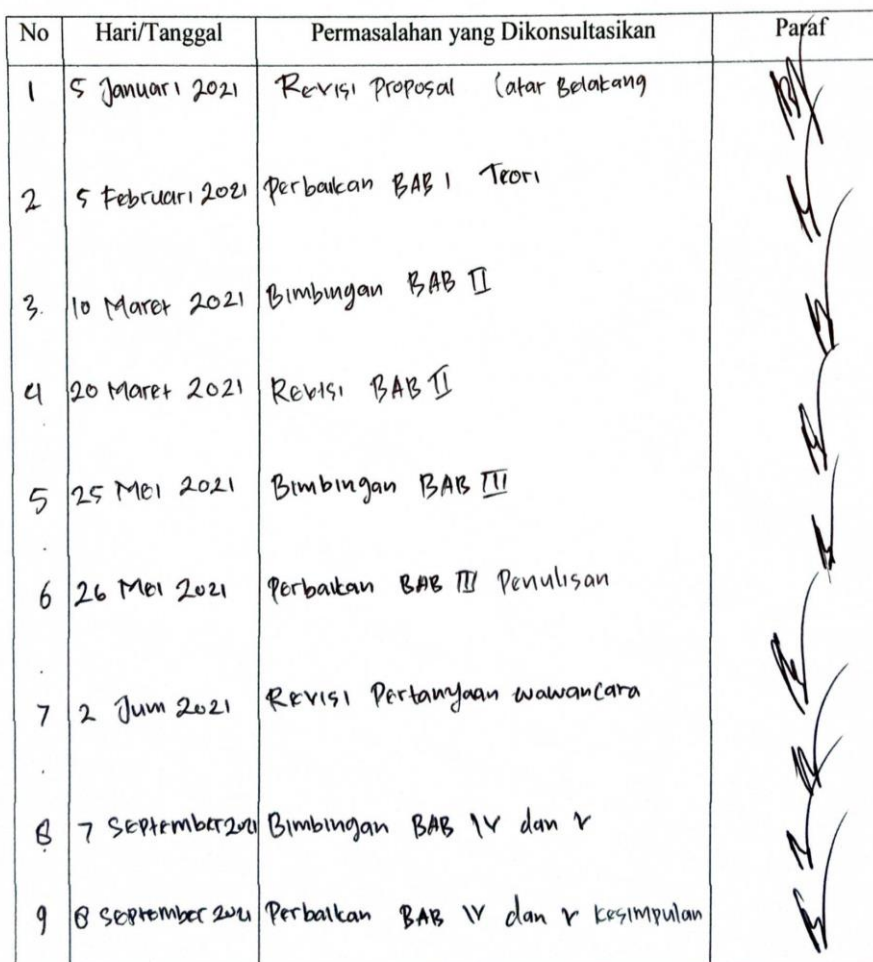 No Hari/Tanggal Permasalahan yang Dikonsultasikan Paraf
1 5 Januari 2021 Revisi Proposal Latar Belakang
2 5 Februari 2021 Perbaikan BAB I Teori
3. 10 Maret 2021 Bimbingan BAB II
4 20 Maret 2021 Revisi BAB II
5 25 Mei 2021 Bimbingan BAB III
6 26 Mei 2021 Perbaikan BAB III Penulisan
7 2 Juni 2021 Revisi Pertanyaan wawancara
8 7 September 2021 Bimbingan BAB IV dan V
9 8 September 2021 Perbaikan BAB IV dan V Kesimpulan